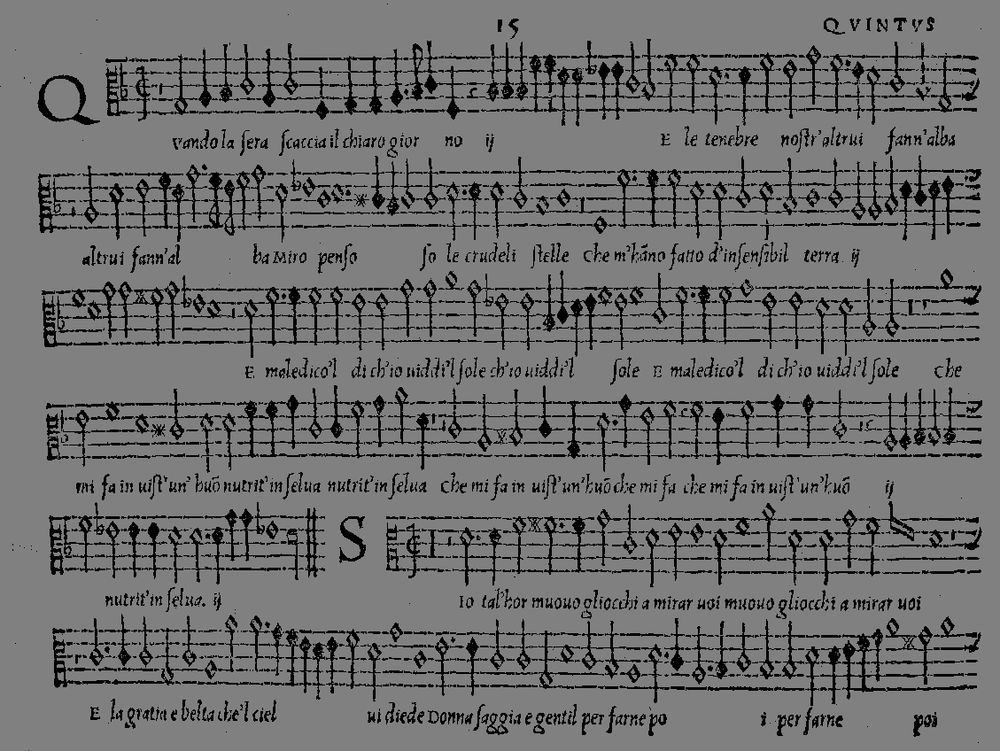 15 QVINTVS
Qvando la sera scaccia il chiaro gior no ij E le tenebre nostr'altrui fann'alba
altrui fann'al ba Miro penso so le crudeli stelle Che m'hāno fatto d'insensibil terra ij
E maledico'l di ch'io uiddi'l sole ch'io uiddi'l sole E maledico'l di ch'io uiddi'l sole Che
mi fa in uist'un'huō nutrit'in selua nutrit'in selua Che mi fa in uist'un'huō che mi fa che mi fa in uist'un'huō ij
nutrit'in selua. ij
SIo tal'hor muouo gliocchi a mirar uoi muouo gliocchi a mirar uoi
E la gratia e belta che'l ciel ui diede Donna saggia e gentil per farne po i per farne poi